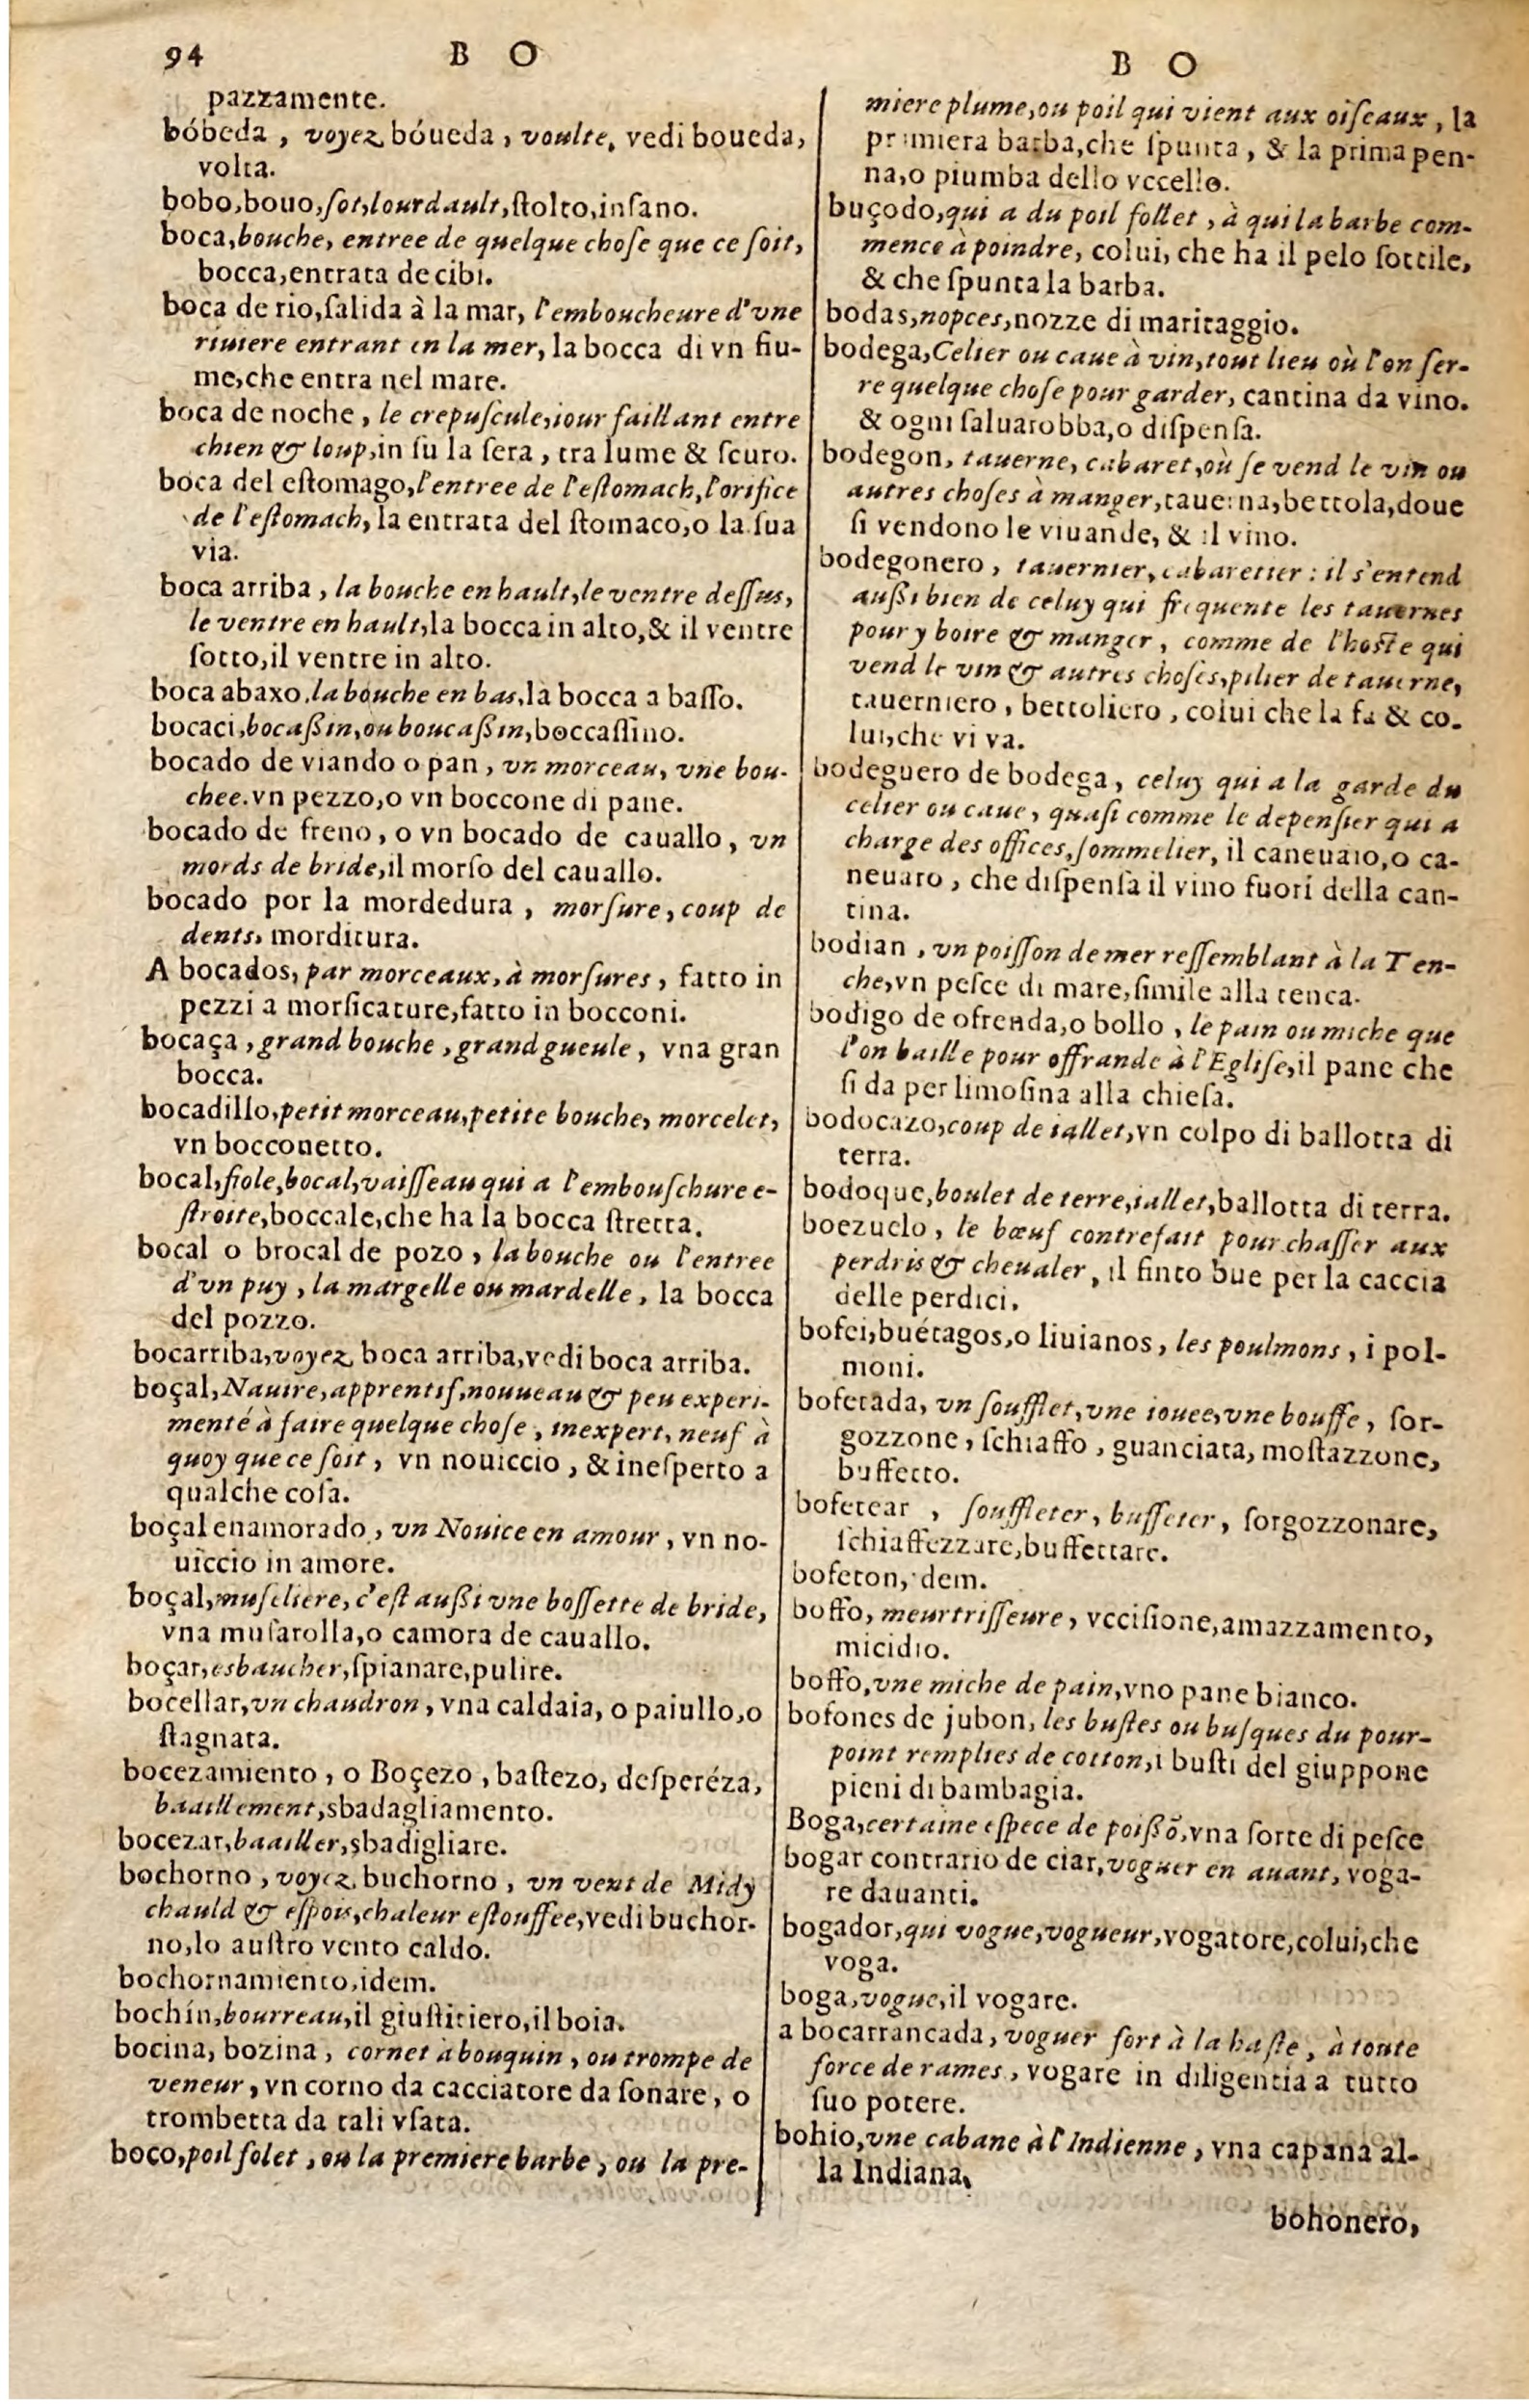 94 B O
pazzamente.
bóbeda, voyez bóueda, voulte, vedi boueda,
volta.
bobo, bouo, ſot, lourdault, ſtolto, inſano.
boca, bouche, entree de quelque choſe que ce ſoit,
bocca, entrata de cibi.
boca de rio, ſalida à la mar, l'emboucheure d'vne
riuiere entrant en la mer, la bocca di vn fiu-
me, che entra nel mare.
boca de noche, le crepuſcule, iour faillant entre
chien & loup, in ſu la ſera, tra lume & ſcuro.
boca del eſtomago, l'entree de l'eſtomach, l'orifice
de l'eſtomach, la entrata del ſtomaco, o la ſua
via.
boca arriba, la bouche en hault, le ventre deſſus,
le ventre en hault, la bocca in alto, & il ventre
ſotto, il ventre in alto.
boca abaxo, la bouche en bas, la bocca a baſſo.
bocaci, bocaßin, ou boucaßin, boccaſſino.
bocado de viando o pan, vn morceau, vne bou-
chee. vn pezzo, o vn boccone di pane.
bocado de freno, o vn bocado de cauallo, vn
mords de bride, il morſo del cauallo.
bocado por la mordedura, morſure, coup de
dents, morditura.
A bocados, par morceaux, à morſures, fatto in
pezzi a morſicature, fatto in bocconi.
bocaça, grand bouche, grand gueule, vna gran
bocca.
bocadillo, petit morceau, petite bouche, morcelet,
vn bocconetto.
bocal, fiole, bocal, vaiſſeau qui a l'embouſchure e-
ſtroite, boccale, che ha la bocca ſtretta.
bocal o brocal de pozo, la bouche ou l'entree
d'vn puy, la margelle ou mardelle, la bocca
del pozzo.
bocarriba, voyez boca arriba, vedi boca arriba.
boçal, Nauire, apprentif, nouueau & peu experi-
menté à faire quelque choſe, inexpert, neuf à
quoy que ce ſoit, vn nouiccio, & ineſperto a
qualche coſa.
boçal enamorado, vn Nouice en amour, vn no-
uiccio in amore.
boçal, muſeliere, c'eſt außi vne boſſette de bride,
vna muſarolla, o camora de cauallo.
boçar, esbaucher, ſpianare, pulire.
bocellar, vn chaudron, vna caldaia, o paiullo, o
ſtagnata.
bocezamiento, o Boçezo, baſtezo, deſperéza,
baaillement, sbadagliamento.
bocezar, baailler, sbadigliare.
bochorno, voyez buchorno, vn vent de Midy
chauld & eſpois, chaleur eſtouffee, vedi buchor-
no, lo auſtro vento caldo.
bochornamiento, idem.
bochín, bourreau, il giuſtitiero, il boia.
bocina, bozina, cornet à bouquin, ou trompe de
veneur, vn corno da cacciatore da ſonare, o
trombetta da tali vſata.
boço, poil folet, ou la premiere barbe, ou la pre-
B O
miere plume, ou poil qui vient aux oiſeaux, la
primiera barba, che ſpunta, & la prima pen-
na, o piumba dello vccello.
buçodo, qui a du poil follet, à qui la barbe com-
mence à poindre, colui, che ha il pelo ſottile,
& che ſpunta la barba.
bodas, nopces, nozze di maritaggio.
bodega, Celier ou caue à vin, tout lieu où l'on ſer-
re quelque choſe pour garder, cantina da vino.
& ogni ſaluarobba, o diſpenſa.
bodegon, tauerne, cabaret, où ſe vend le vin ou
autres choſes à manger, tauerna, bettola, doue
ſi vendono le viuande, & il vino.
bodegonero, tauernier, cabaretier: il s'entend
außi bien de celuy qui frequente les tauernes
pour y boire & manger, comme de l'hoſte qui
vend le vin & autres choſes, pilier de tauerne,
tauerniero, bettoliero, colui che la fa & co-
lui, che vi va.
bodeguero de bodega, celuy qui a la garde du
celier ou caue, quaſi comme le depenſier qui a
charge des offices, ſommelier, il caneuaio, o ca-
neuaro, che diſpenſa il vino fuori della can-
tina.
bodian, vn poiſſon de mer reſſemblant à la Ten-
che, vn peſce di mare, ſimile alla tenca.
bodigo de ofrenda, o bollo, le pain ou miche que
l'on baille pour offrande à l'Egliſe, il pane che
ſi da per limoſina alla chieſa.
bodocazo, coup de iallet, vn colpo di ballotta di
terra.
bodoque, boulet de terre, iallet, ballotta di terra.
boezuelo, le bœuf contrefait pour chaſſer aux
perdris & cheualer, il finto bue per la caccia
delle perdici.
bofei, buétagos, o liuianos, les poulmons, i pol-
moni.
bofetada, vn ſoufflet, vne iouee, vne bouffe, ſor-
gozzone, ſchiaffo, guanciata, moſtazzone,
buffetto.
bofetear, ſouffleter, buffeter, ſorgozzonare,
ſchiaffezzare, buffettare.
bofeton, dem.
boffo, meurtriſſeure, vcciſione, amazzamento,
micidio.
boffo, vne miche de pain, vno pane bianco.
bofones de jubon, les buſtes ou buſques du pour-
point remplies de cotton, i buſti del giuppone
pieni di bambagia.
Boga, certaine eſpece de poißõ, vna ſorte di peſce
bogar contrario de ciar, voguer en auant, voga-
re dauanti.
bogador, qui vogue, vogueur, vogatore, colui, che
voga.
boga, vogue, il vogare.
a bocarrancada, voguer fort à la haſte, à toute
force de rames, vogare in diligentia a tutto
ſuo potere.
bohio, vne cabane à l'Indienne, vna capana al-
la Indiana,
bohonero,